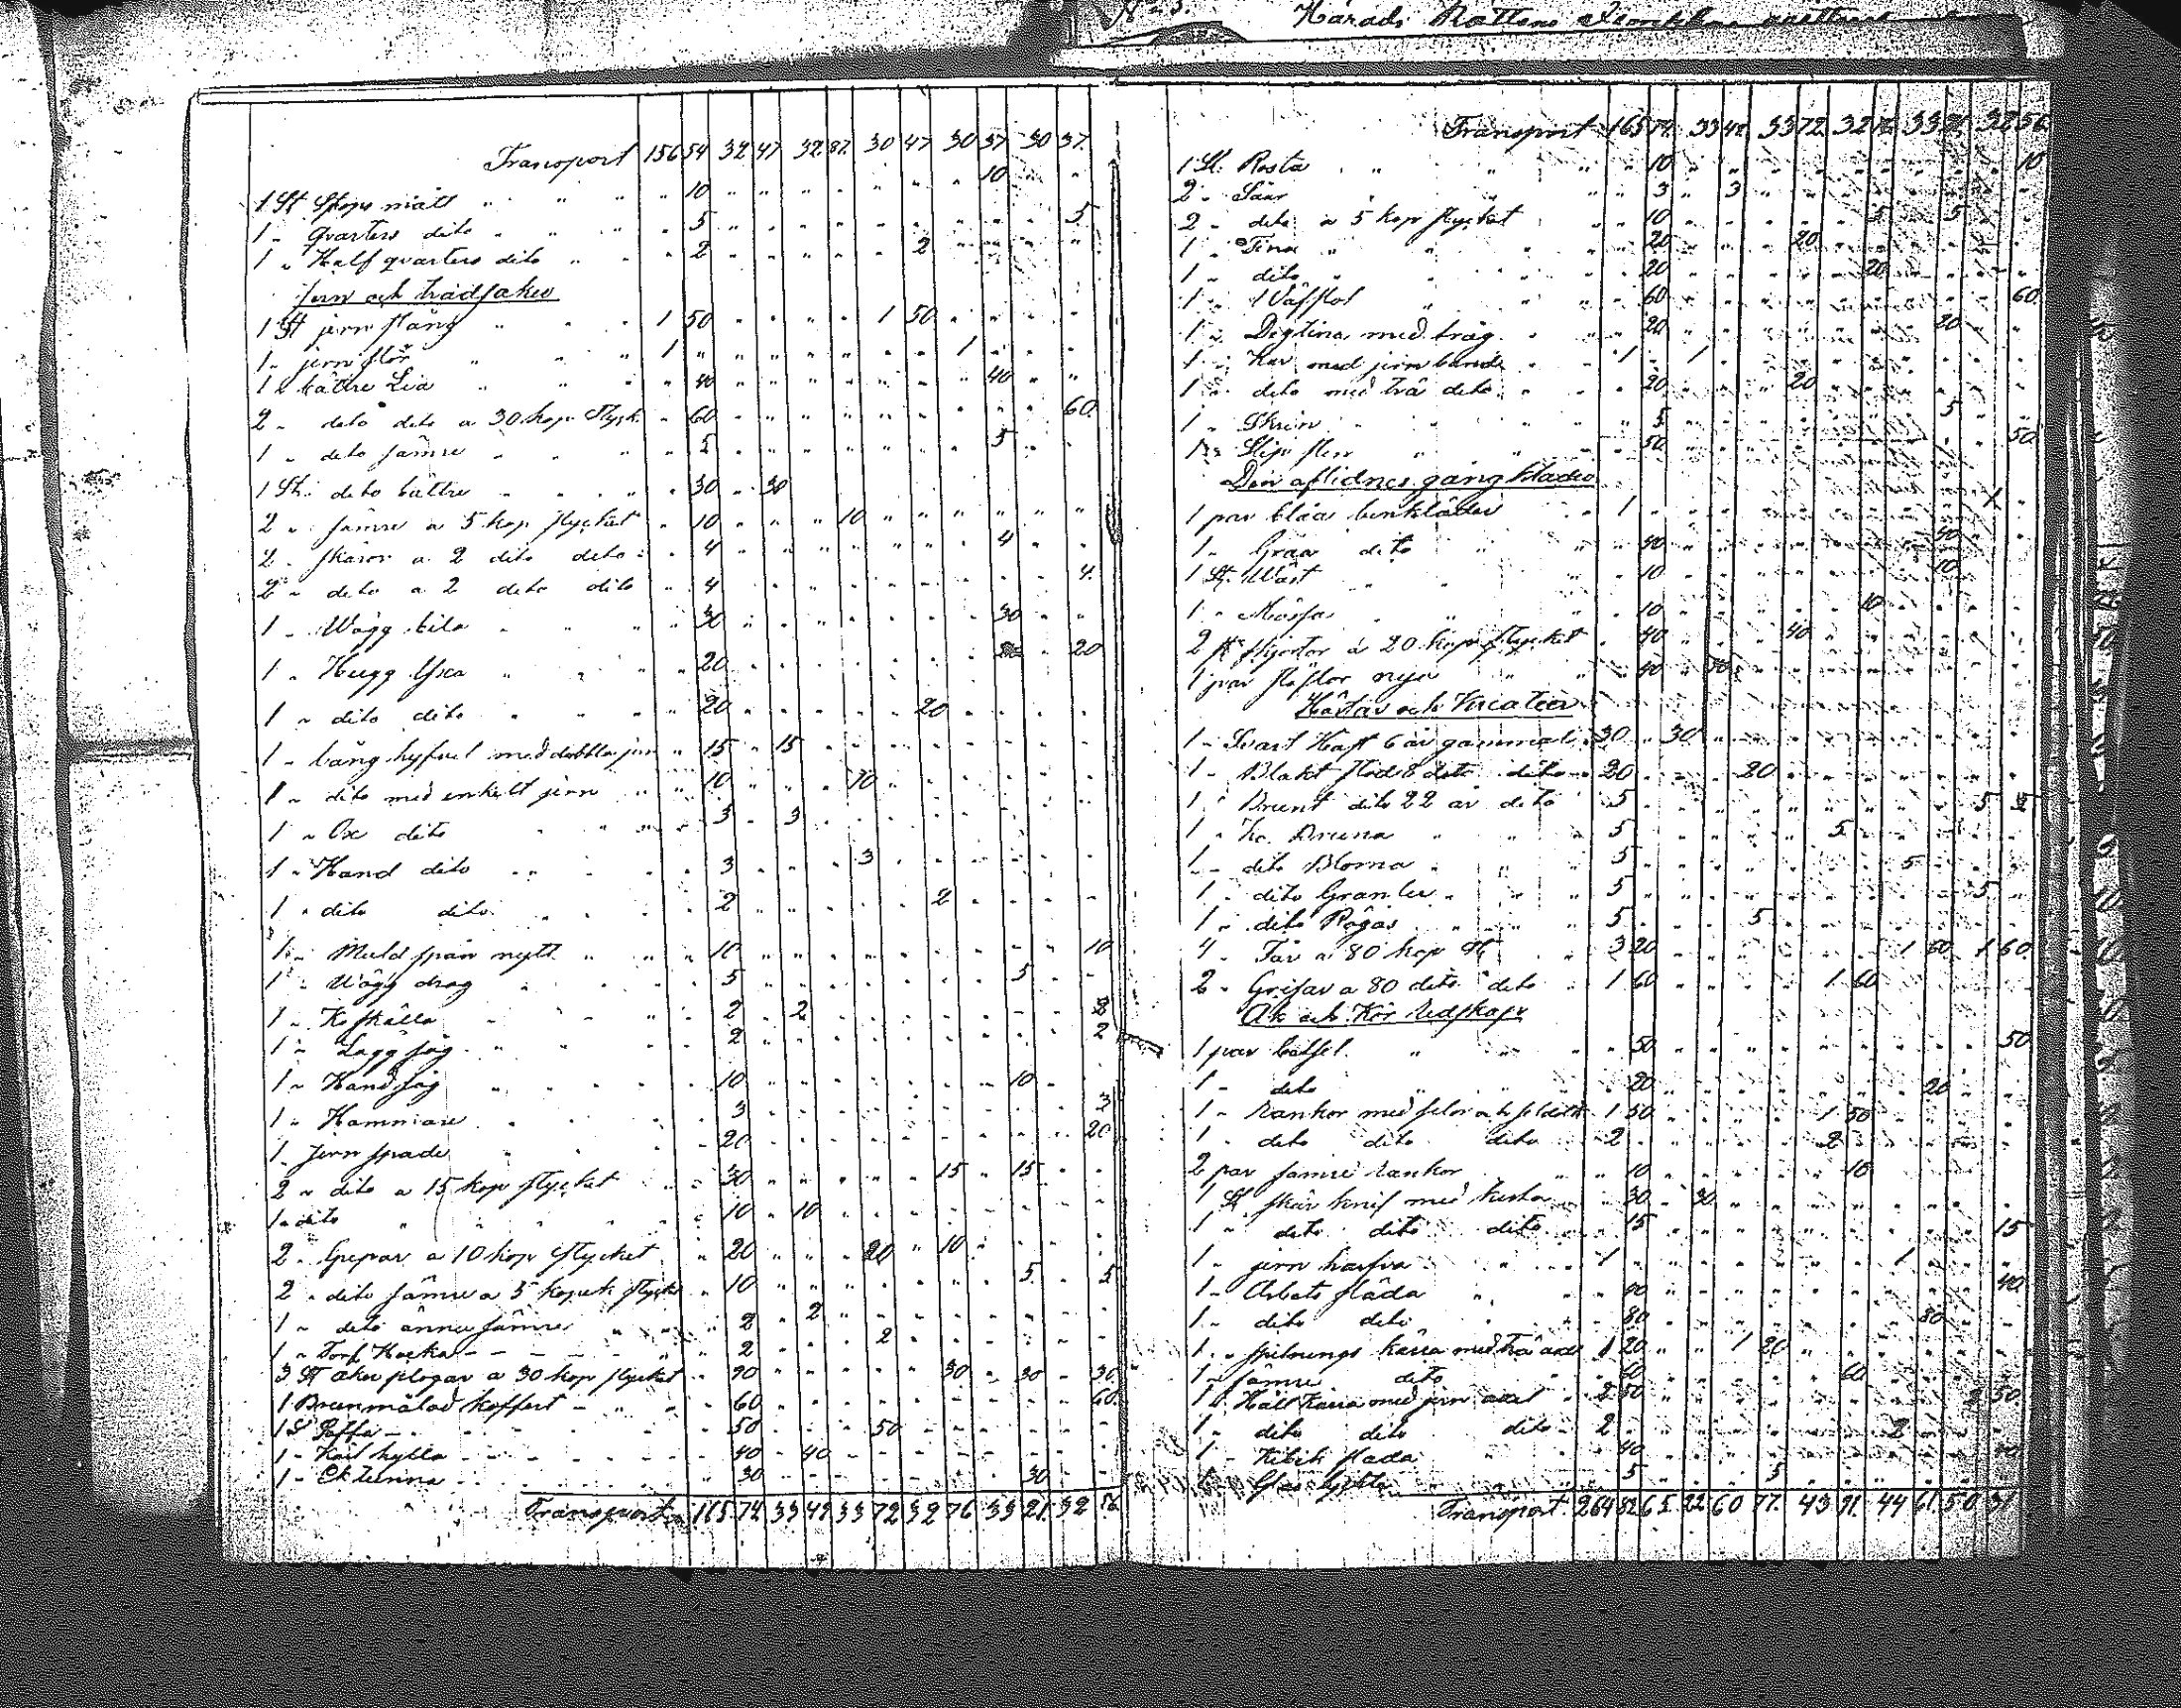 Transport 156 54 32 47 32 87 30 47 30 37 30 37
1 St mått 10 10
1 " qvarters dito 5 5
1 " Half qvarters dito 2 2
Jern och trädsaker
1 St jern stång 1 50 1 50
1 " jern stör 1 1
1 " bättre Lia 40 40
2 " dito dito a 30 kop styck 60 60
1 " dito sämre 5 5
1 St. dito bättre 30 30
2 " sämre a 5 kop stycket 10 10
2 " skäror a 2 dito dito 4 4
2 " dito a 2 dito dito 4 4
1 " Wägg bila 30 30
1 " Hugg Yxa 20 20
1 " dito dito 20 20
1 " lång hyfvel med dubbla jern 15 15
1 " dito med enkelt jern 10 10
1 " Ox dito 3 3
1 " Hand dito 3 3
1 " dito dito 2 2
1 " Muld spån nytt 10 10
1 " Wägg drag 5 5
1 " Ko skälla 2 2
1 " Lagg såg 2 2
1 " Hand såg 10 10
1 " Hammare 3 3
1 " Jern spade 20 20
2 " dito a 15 kop stycket 30 15 15
1 " dito 10 10
2 " Grepar a 10 kop stycket 20 20 10
2 " dito sämre a 5 kopek stycket 10 5 5
1 " dito ännu sämre 2 2
1 " Torf Hacka 2 2
3 St åker plogar a 30 kop stycket 90 30 30 30
1 Brunmålad koffert 60 60
1 St Soffa 50 50
1 " hylla 40 40
1 " Ek tunna 30 30
Transport 165 74 33 42 33 72 32 76 33 21 32 56
Transport 165 74 33 42 33 72 32 76 33 21 32 56
1 St. Rosta 10 10
2 " Såar 3 3
2 " dito a 5 kop stycket 10 5 5
1 " Tina 20 20
1 " dito 20 20
1 " Väfstol 60 60
1 " Degtina med tråg 20 20
1 " Kar med jern bande 1 1
1 " dito med trä dito 20 20
1 " Skrin 5 5
1 " Slip sten 50 50
Den aflidnes gång kläder
1 par blåa benkläder 1 1
1 " Gråa dito 40 40
1 St. Wäst 10 10
1 " Mössa 10 10
2 St skjortor a 20 kop stycket 40 40
1 par stöflor nya 40
Hästar och Kreatur
1 " Svart Häst 6 år gammal 30 30
1 " Blakt stod 8 dito dito 20 20
1 " Brunt dito 22 år dito 5 5
1 " Ko Bruna 5 5
1 " dito Blorna 5 5
1 " dito Granlu 5 5
1 " dito Rågas 5 5
4 " Får a 80 kop St 3 20 1 60 1 60
2 " Grisar a 80 dito dito 1 60 1 60
Åk och Kör Redskap
1 par betsel 50 50
1 " dito 20 20
1 " rankor med selor 1 50 1 50
1 " dito dito dito 2 2
2 par sämre rankor 10 10
1 St skär knif med kista 30 30
1 " dito dito dito 15 15
1 " jern harfva 1 1
1 " Arbets släda 40 40
1 " dito dito 80 80
1 " spilnings kärra med trä axel 1 20 1 20
1 " sämre dito 60 60
1 " kärra med jern axel 2 50 2 50
1 " dito dito dito 2 2
1 " Kibik släda 40 40
5 5
Transport 264 82 65 22 60 77 43 91 44 61 50 31